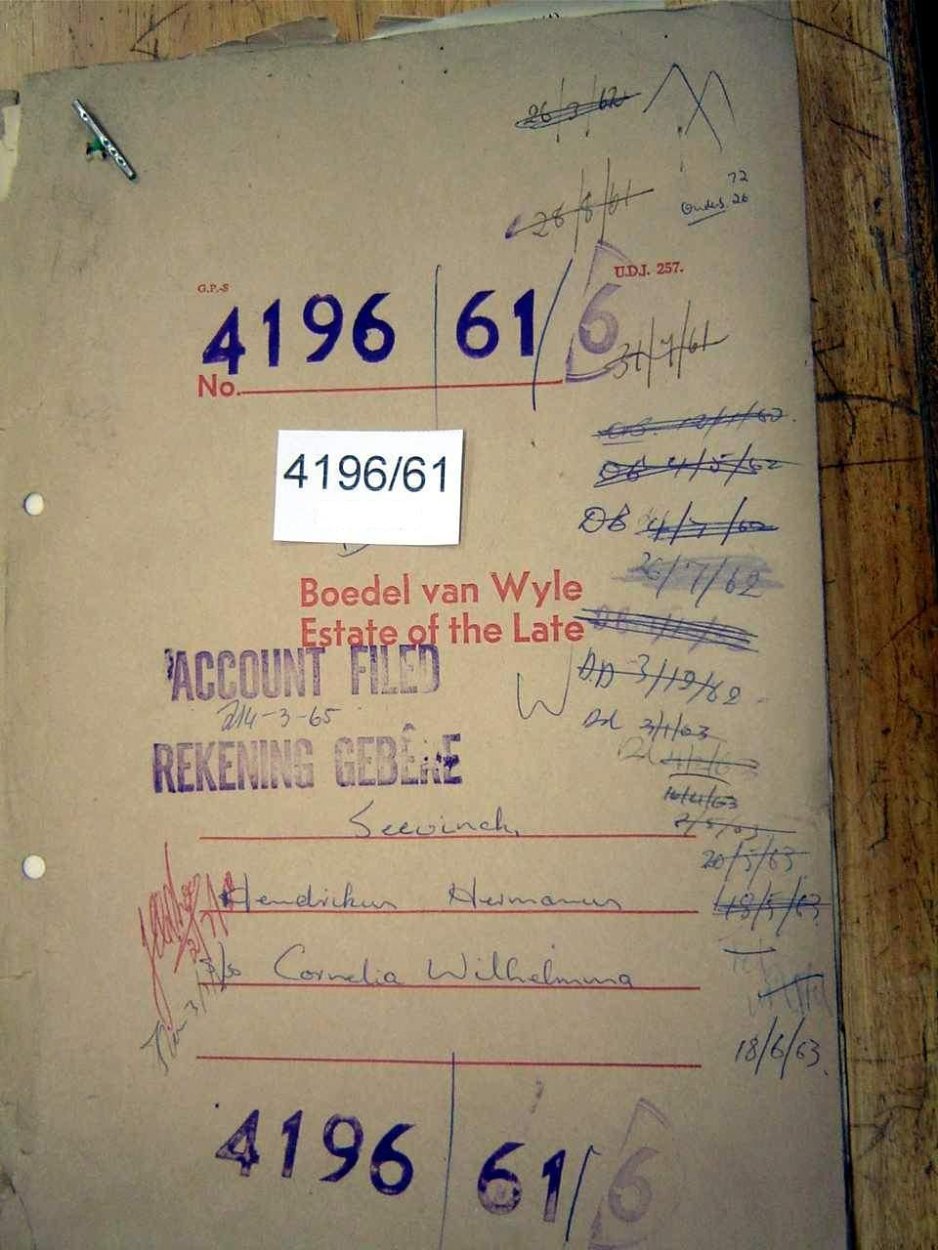 26/3/62
28/8/61
72
26
G.P.-S
U.D.J. 257.
4196 61/6
No.
31/7/61
12/1/62
4196/61
4/5/62
DB 4/7/62
26/7/62
Boedel van Wyle
Estate of the Late
ACCOUNT FILED
DD 3/12/62
14-3-65
Dd 3/1/63
REKENING GEBÊRE
16/4/63
2/5/63
20/5/63
Hendrikus Hermanus
18/5/63
Cornelia Wilhelmina
18/6/63
4196 61/6